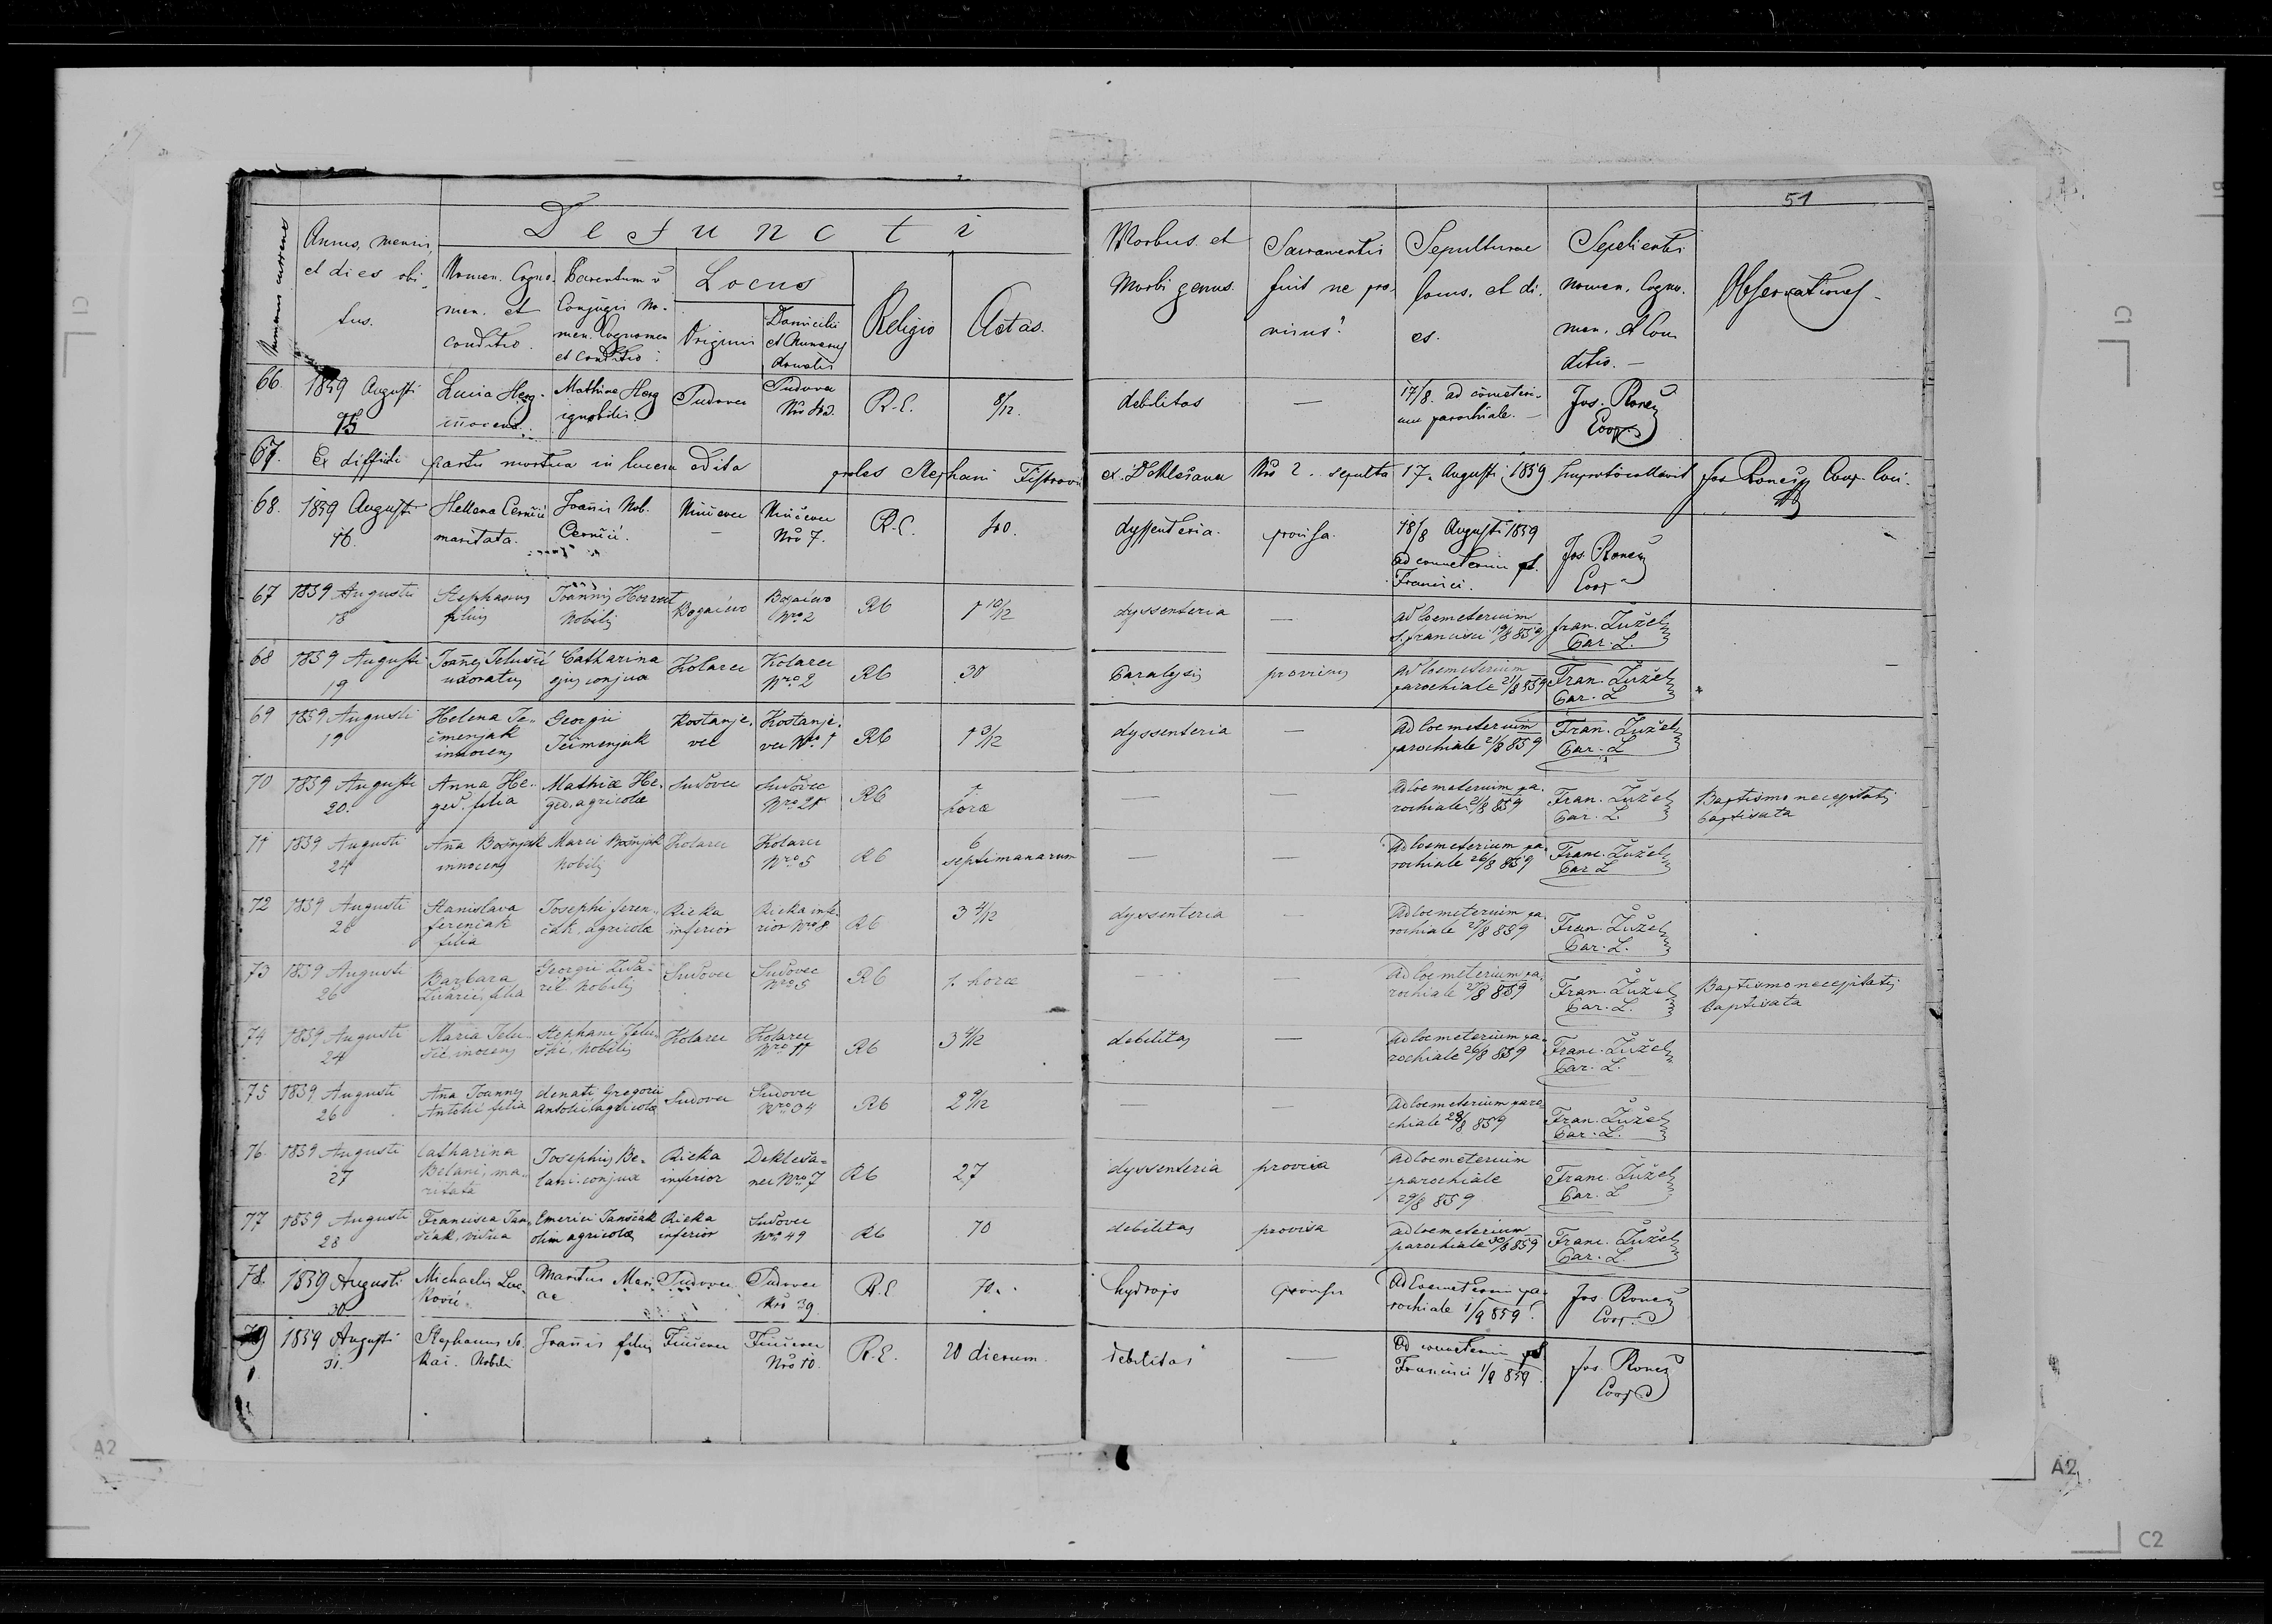 51
Numerus currens
Annus, mensis, et dies obitus.
Defuncti
Nomen. Cognomen. et conditio.
Parentum v Conjugis Nomen. Cognomen et conditio.
Locus
Originis
Domicilii et Numerus domalis
Religio
Aetas.
Morbus. et Morbi genus.
Sacramentis fuit ne provisus?
Sepulturae locus, et dies.
Sepelientis nomen, Cognomen, et Conditio. —
Observationes
66. 1859 Augusti 15 Lucia Herg. innocens. Mathiae Herg ignobilis. Tudovec Tudovec Nro R.C. 8/12. debilitas — 17/8. ad cömeterium parochiale. — Jos. Coop.
67. Ex difficili partu mortua in lucem edita proles Stephani ex. Nro 2. sepulta 17. Augusti 1859 Jos. Coop.
68. 1859 Augusti 16. Hellena maritata. Joañis Nob. — Nro 7. R.C. 40. dyssenteria. provisa. 18/8 Augusti 1859 ad coemeterium st. Francisci. Jos. Coop
67 1859 Augusti 18 Stephanus filius Joannis Horvat Nobilis Bogaćevo Bogaćevo Nro 2 RC 1 10/12 dyssenteria — ad Coemeterium s. francisci 19/8 859 fran. Žužel Par. L.
68 1859 Augusti 19 Joañes Jelušić uxoratus Catharina ejus conjux Kolarec Kolarec Nro 2 RC 30 Paralysis provisus ad Coemeterium parochiale 21/8 859 Fran. Žužel Par. L
69 1859 Augusti 19 Helena Ječmenjak innocens Georgii Ječmenjak Kostanjevec Kostanjevec Nro 1 RC 1 3/12 dyssenteria — ad Coemeterium parochiale 21/8 859 Fran. Žužel Par. L
70 1859 Augusti 20. Anna Heged. filia Mathiæ Heged. agricolæ Sudovec Sudovec Nro 21 RC 1 horæ — — ad Coemeterium parochiale 21/8 859 Fran. Žužel Par. L. Baptismo necessitatis baptisata
71 1859 Augusti 24 Aña Bošnjak innocens Marci Bošnjak Nobilis Kolarec Kolarec Nro 5 RC 6 septimanarum — — ad Coemeterium parochiale 26/8 859 Franc. Žužel Par L
72 1859 Augusti 26 Stanislava ferenčak filia Josephi ferenčak, agricolæ Rieka inferior Rieka inferior Nro 8 RC 3 4/12 dyssenteria — ad Coemeterium parochiale 27/8 859 Fran. Žužel Par. L.
73 1859 Augusti 26 Barbara filia Georgii Nobilis Sudovec Sudovec Nro 5 RC 1. horæ — — ad Coemeterium parochiale 27/8 859 Fran. Žužel Par. L. Baptismo necessitatis baptisata
74 1859 Augusti 24 Maria Jelušić, inocens Stephani Jelušić, Nobilis Kolarec Kolarec Nro 11 RC 3 4/12 debilitas — ad Coemeterium parochiale 26/8 859 Franc. Žužel Par. L.
75 1859 Augusti 26 Aña Joannes Antolić filia denati Gregorii Antolić agricolæ Sudovec Sudovec Nro 34 RC 2 9/12 — — ad Coemeterium parochiale 28/8 859 Fran. Žužel Par. L.
76. 1859 Augusti 27 Catharina Belani, maritata Josephus Belani. conjux Rieka inferior Nro 7 RC 27 dyssenteria provisa ad Coemeterium parochiale 29/8 859 Franc. Žužel Par. L
77 1859 Augusti 28 Francisca Janščak, vidua Emerici Janščak olim agricolæ Rieka inferior Sudovec Nro 49 RC 70 debilitas provisa ad Coemeterium parochiale 30/8 859 Franc. Žužel Par. L.
78. 1859 Augusti 30 Michaelis Maritus Mariae Tudovec Tudovec Nro 39. R.C. 70.. hydrops provisus ad Coemeterium parochiale 1/9 859. Jos. Coop.
79 1859 Augusti 31. Stephanus Nobilis Joañis filius Nro 10. R.C. 20 dierum. debilitas — ad coemeterium st. Francisci 1/9 859. Jos. Coop.
A2
A2
C1
C1
C2